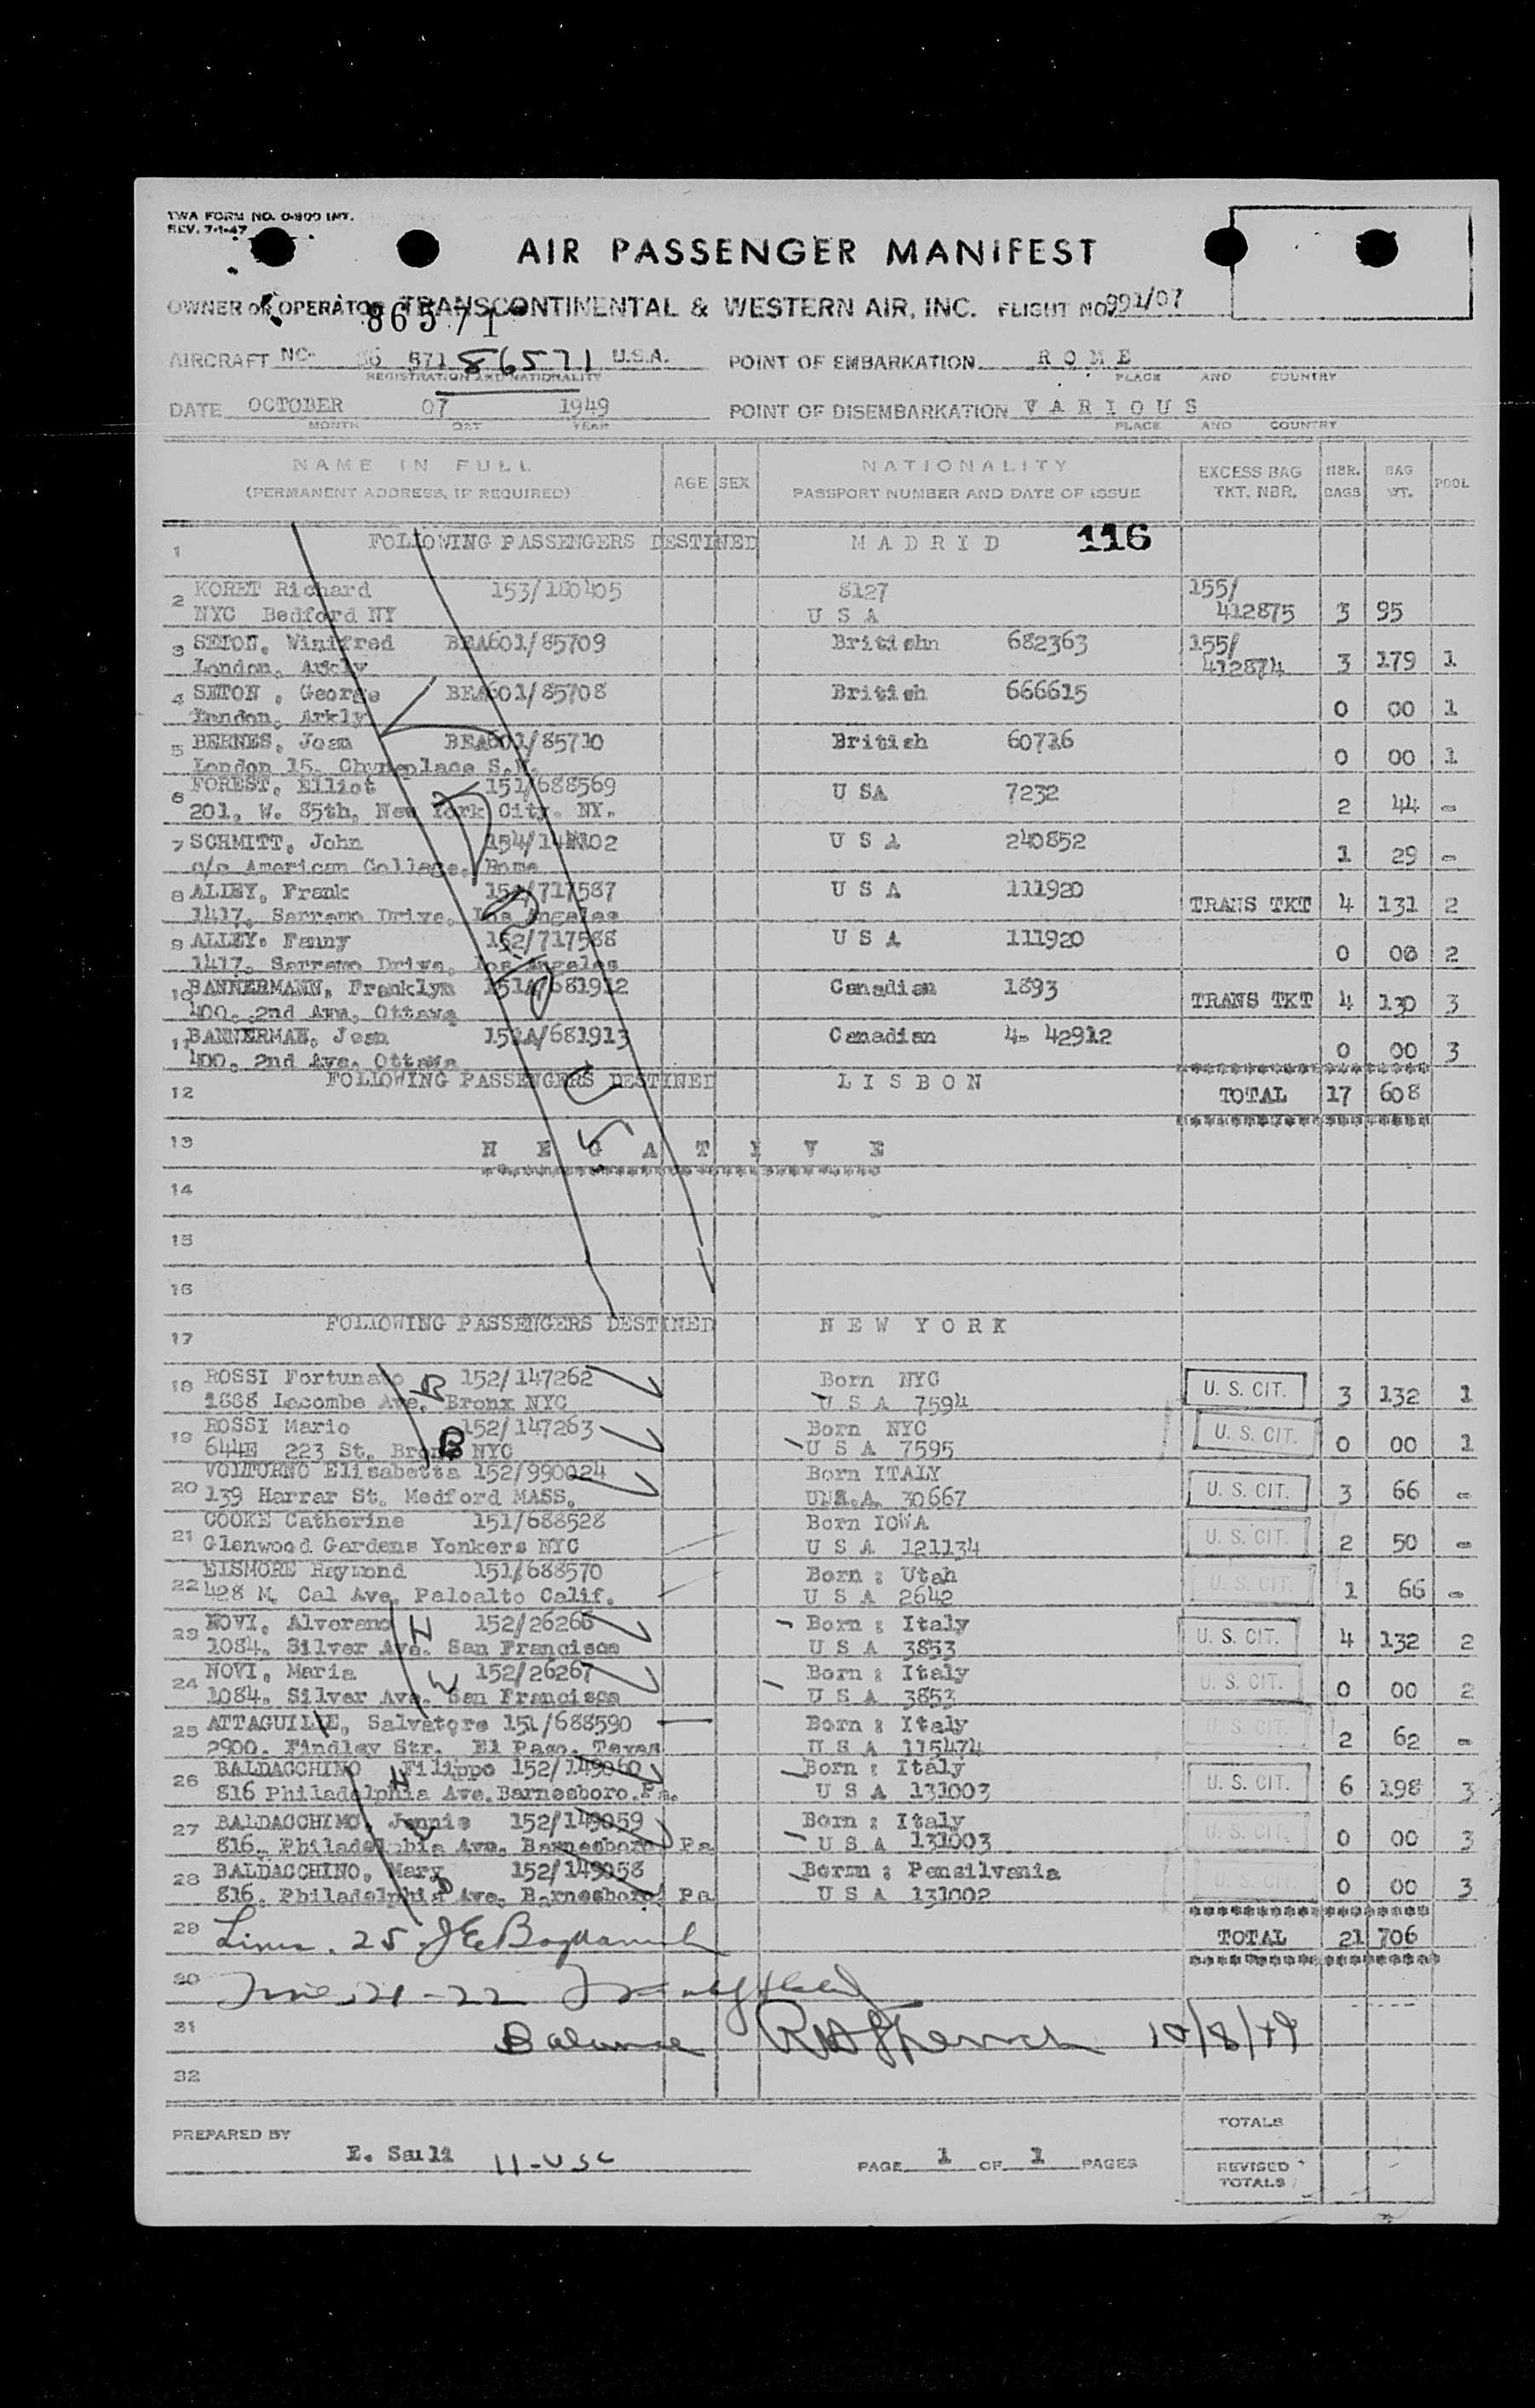 TWA FORM NO. O-800 INT.
REV. 7-1-47
AIR PASSENGER MANIFEST
OWNER OR OPERATOR TRANSCONTINENTAL & WESTERN AIR, INC. FLIGHT NO 991/07
86571
AIRCRAFT NC- 86 571 86571 U.S.A. POINT OF EMBARKATION R O M E
REGISTRATION AND NATIONALITY PLACE AND COUNTRY
DATE OCTOBER 07 1949 POINT OF DISEMBARKATION V A R I O U S
MONTH DAY YEAR PLACE AND COUNTRY
NAME IN FULL AGE SEX NATIONALITY EXCESS BAG NBR. BAG POOL
(PERMANENT ADDRESS, IF REQUIRED) PASSPORT NUMBER AND DATE OF ISSUE TKT. NBR. BAGS WT.
1 FOLLOWING PASSENGERS DESTINED M A D R I D 116
2 KORET Richard 153/180405 8127 155/
NYC Bedford NY U S A 412875 3 95
3 SETON, Winifred BEA601/85709 Britishn 682363 155/
London, Arkly 412874 3 179 1
4 SETON , George BEA601/85708 British 666615
London, Arkly 0 00 1
5 BERNES, Joan BEA601/85710 British 60716
London 15, S.W. 0 00 1
6 FOREST, Elliot 151/688569 U SA 7232
201, W. 85th, New York City. NY. 2 44 -
7 SCHMITT, John U S A 240852
c/o American College, Rome 1 29 -
8 ALLEY, Frank 152/717587 U S A 111920
1417, Serrano Drive, Los Angeles TRANS TKT 4 131 2
9 ALLEY. Fanny 152/717588 U S A 111920
1417, Serrano Drive, Los Angeles 0 00 2
10 BANNERMANN, Franklyn 151A/681912 Canadian 1893
400, 2nd Ave, Ottawa TRANS TKT 4 130 3
11 BANNERMAN, Jean 151A/681913 Canadian 4- 42912
400, 2nd Ave, Ottawa 0 00 3
12 FOLLOWING PASSENGERS DESTINED L I S B O N TOTAL 17 608
13 N E G A T I V E
14
15
16
17 FOLLOWING PASSENGERS DESTINED N E W Y O R K
18 ROSSI Fortunato B 152/147262 Born NYC
1888 Lacombe Ave, Bronx NYC U S A 7594 U. S. CIT. 3 132 1
19 ROSSI Mario B 152/147263 Born NYC
644E 223 St. Bronx NYC U S A 7595 U. S. CIT. 0 00 1
20 VOLTURNO Elisabetta 152/990024 Born ITALY
139 Harrar St. Medford MASS. 30667 U. S. CIT. 3 66 -
21 COOKE Catherine 151/688528 Born IOWA
Glenwood Gardens Yonkers NYC U S A 121134 U. S. CIT. 2 50 -
22 EISMORE Raymond 151/688570 Born : Utah
428 M. Cal Ave. Paloalto Calif. U S A 2642 U. S. CIT. 1 66 -
23 NOVI, Alverano H 152/26266 Born : Italy
1084. Silver Ave. San Francisco U S A 3853 U. S. CIT. 4 132 2
24 NOVI, Maria W 152/26267 Born : Italy
1084. Silver Ave. San Francisco U S A 3853 U. S. CIT. 0 00 2
25 ATTAGUILLE, Salvatore 151/688590 Born : Italy
2900. Findley Str. El Paso. Texas U S A 115474 U. S. CIT. 2 62 -
26 BALDACCHINO Filippo 152/149060 Born : Italy
816 Philadelphia Ave. Barnesboro. Pa. H U S A 131003 U. S. CIT. 6 198 3
27 BALDACCHINO, Jennie 152/149059 Born : Italy
816. Philadelphia Ave. Barnesboro Pa W U S A 131003 U. S. CIT. 0 00 3
28 BALDACCHINO, Mary 152/149058 Bormn : Pensilvania
816. Philadelphia Ave. Barnesboro Pa D U S A 131002 U. S. CIT. 0 00 3
29 Lines. 25 TOTAL 21 706
30 21-22
31 Balance 10/8/49
32
TOTALS
PREPARED BY E. Sauli 11-USC PAGE 1 OF 1 PAGES REVISED
TOTALS